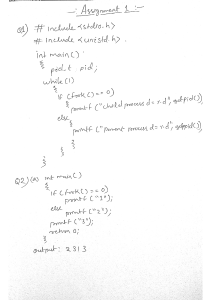 -: Assignment 1 :-
Q1) # include <stdio.h>
# include <unistd.h>.
int main()
{
pid_t pid;
while(1)
{
if (fork() == 0)
printf ("child process d= %d", getpid())
else
printf ("parent process d= %d", getppid())
}
}
}
Q2) (a) int main()
{
if (fork() == 0)
printf "1");
else
printf ("2");
printf ("3");
return 0;
}
output: 2313